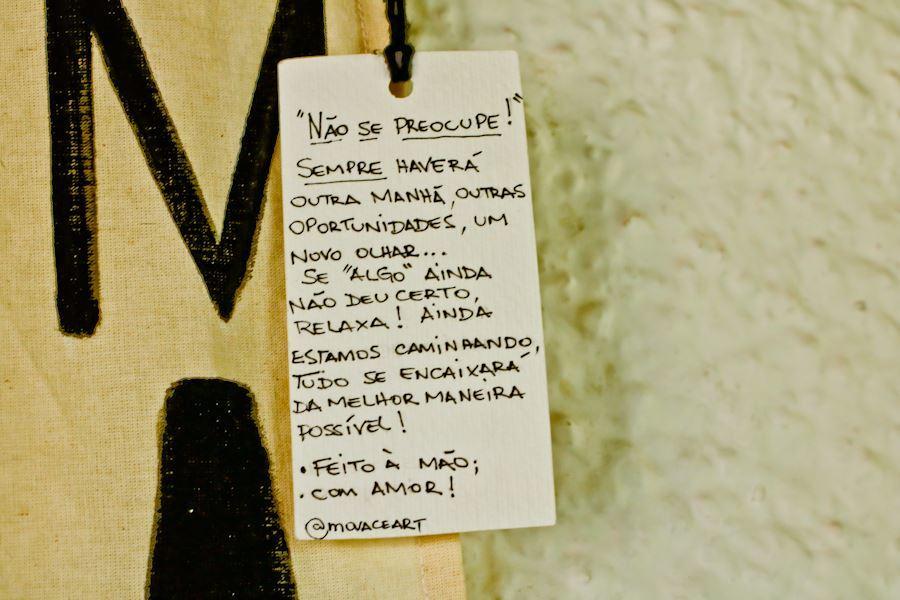 M
"NÃO SE PREOCUPE!"
SEMPRE HAVERÁ
OUTRA MANHÃ, OUTRAS
OPORTUNIDADES, UM
NOVO OLHAR...
SE "ALGO" AINDA
NÃO DEU CERTO,
RELAXA! AINDA
ESTAMOS CAMINHANDO,
TUDO SE ENCAIXARÁ
DA MELHOR MANEIRA
POSSÍVEL!
• FEITO À MÃO;
• COM AMOR!
@MOVACEART